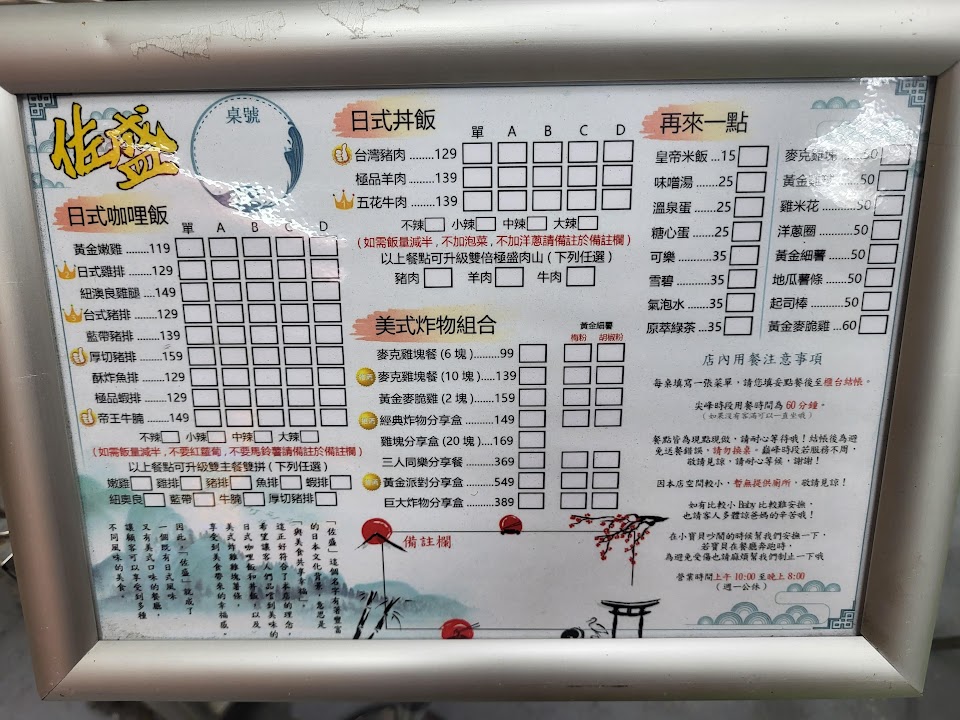 佐盛
桌號
日式咖哩飯
單 A B C D
黃金嫩雞 ......119
日式雞排 ......129
紐澳良雞腿 ....149
台式豬排 ......129
藍帶豬排 ......139
厚切豬排 ......159
酥炸魚排 ......129
極品蝦排 ......129
帝王牛腩 ......149
不辣 小辣 中辣 大辣
(如需飯量減半,不要紅蘿蔔,不要馬鈴薯請備註於備註欄)
以上餐點可升級雙主餐雙拼(下列任選)
嫩雞 雞排 豬排 魚排 蝦排
紐奧良 藍帶 牛腩 厚切豬排
「佐盛」這個名字有著豐富
的日本文化背景,意思是
「與美食共享幸福」。
這正好符合了本店的理念,
希望讓客人們品嚐到美味的
日式咖哩飯和丼飯,以及
美式炸雞雞塊薯條,
享受到美食帶來的幸福感。
因此,「佐盛」就成了
一個既有日式風味
又有美式口味的餐廳,
讓顧客可以享受到多種
不同風味的美食。
日式丼飯
單 A B C D
台灣豬肉 ........129
極品羊肉 ........139
五花牛肉 ........139
不辣 小辣 中辣 大辣
(如需飯量減半,不加泡菜,不加洋蔥請備註於備註欄)
以上餐點可升級雙倍極盛肉山(下列任選)
豬肉 羊肉 牛肉
美式炸物組合
黃金細薯
梅粉 胡椒粉
麥克雞塊餐(6 塊).........99
麥克雞塊餐(10 塊).....139
黃金麥脆雞(2 塊).......159
經典炸物分享盒.........149
雞塊分享盒(20 塊)....169
三人同樂分享餐.........369
黃金派對分享盒.........549
巨大炸物分享盒.........389
備註欄
再來一點
皇帝米飯 ...15
味噌湯 ......25
溫泉蛋 ......25
糖心蛋 ......25
可樂 .........35
雪碧 .........35
氣泡水 ......35
原萃綠茶 ...35
麥克雞塊 ...50
黃金 ...50
雞米花 ......50
洋蔥圈 ......50
黃金細薯 .....50
地瓜薯條 .....50
起司棒 ......50
黃金麥脆雞 ...60
店內用餐注意事項
每桌填寫一張菜單,請您填妥點餐後至櫃台結帳。
尖峰時段用餐時間為 60 分鐘。
(如果沒有客滿可以一直坐哦)
餐點皆為現點現做,請耐心等待哦!結帳後為避
免送餐錯誤,請勿換桌。巔峰時段若服務不周,
敬請見諒,請耐心等候,謝謝!
因本店空間較小,暫無提供廁所,敬請見諒!
如有比較小 Baby 比較難安撫,
也請客人多體諒爸媽的辛苦哦!
在小寶貝吵鬧的時候幫我們安撫一下,
若寶貝在餐廳奔跑時,
為避免受傷也請麻煩幫我們制止一下哦
營業時間上午 10:00 至晚上 8:00
(週一公休)